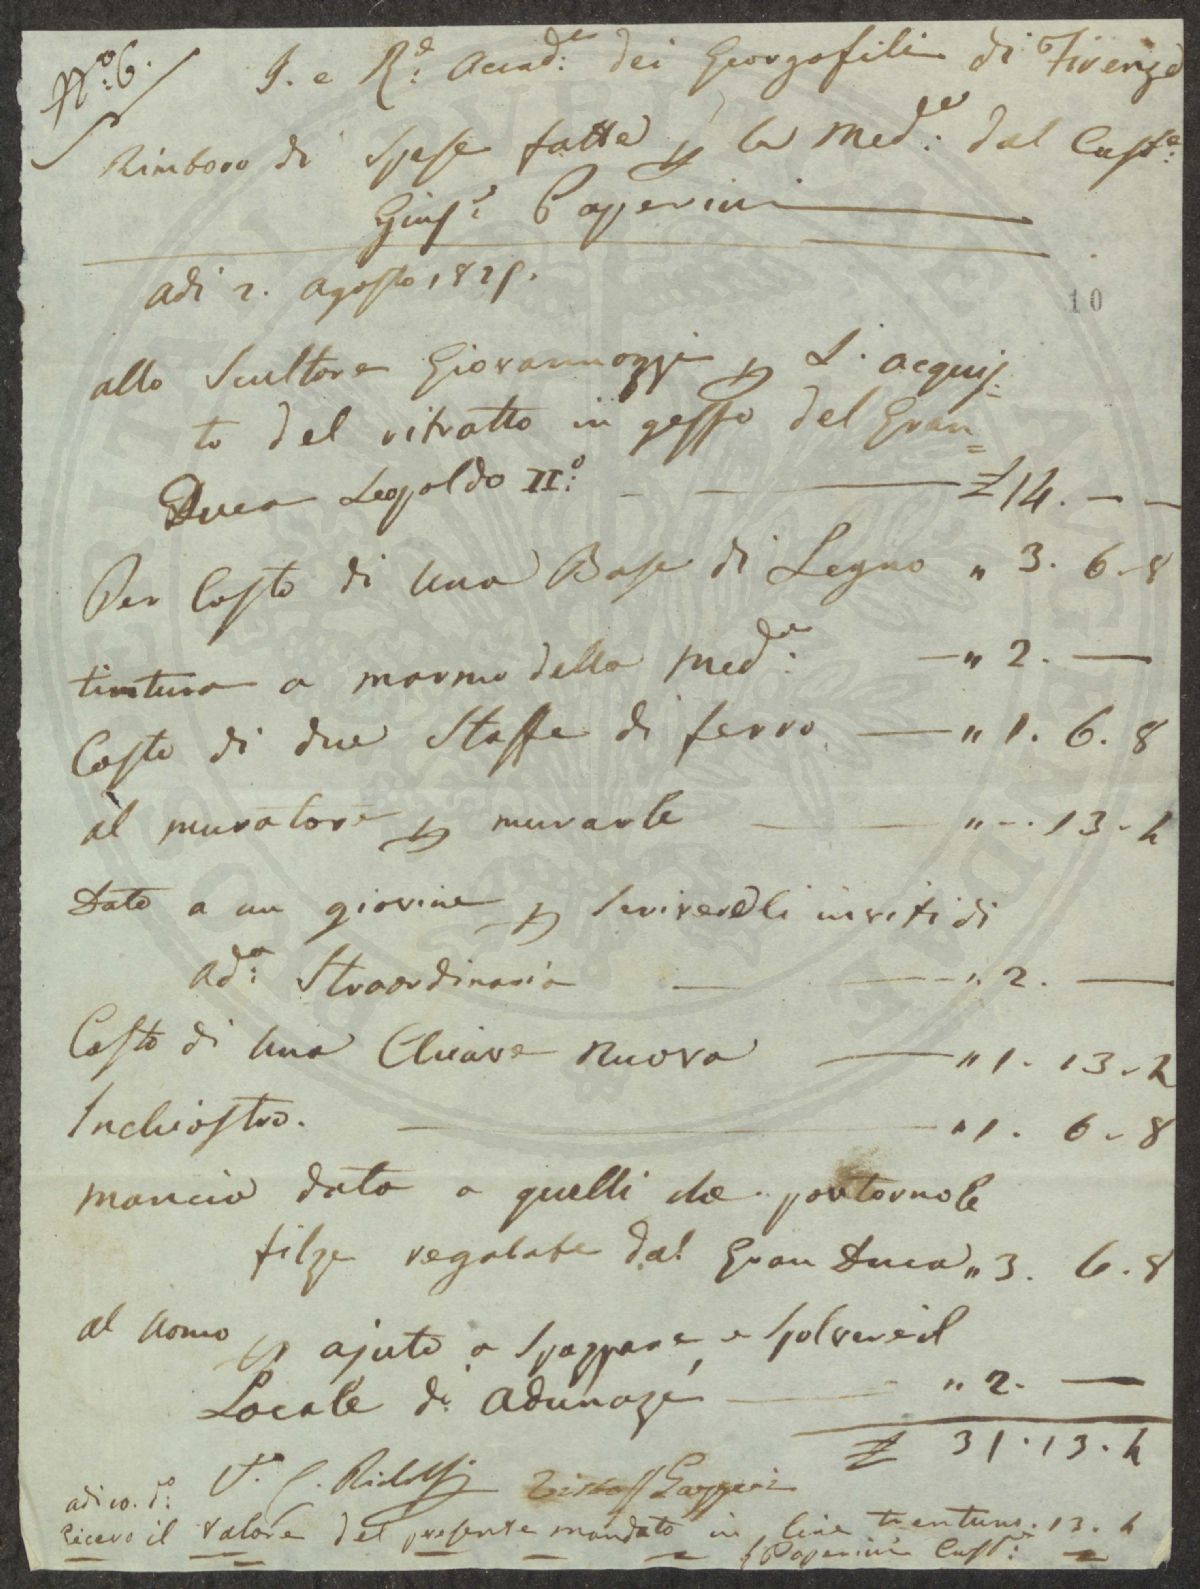 N.o 6.
I. e R.e Accad.e dei Georgofili di Firenze
Rimborso di spese fatte p la Med.e dal Cust.e
Gius.e Paperini
adi 2. agosto 1825.
10
allo Scultore Giovannozzi p L'acquis=
to del ritratto in gesso del Gran=
Duca Leopoldo II.o £ 14. — —
Per Costo di una Base di Legno " 3. 6. 8
tintura a marmo della Med.a — " 2. —
Costo di due Staffe di ferro — " 1. 6. 8
al muratore p murarle — " -. 13. 4
Dato a un giovine p scrivere gli inviti di
Ad.a Straordinaria — " 2. —
Costo di una Chiave nuova — " 1. 13. 4
Inchiostro. — " 1. 6. 8
mancia data a quelli che portorno le
filze regalate dal Gran Duca " 3. 6. 8
al uomo p ajuto a spazzare, e spolvere il
Locale di Adunaze — " 2. —
£ 31. 13. 4
V.o C. Ridolfi Visto Gazzeri
adi 10. d.o
Ricevo il valore del presente mandato in lire trentuno. 13. 4
G Paperini Cust.e